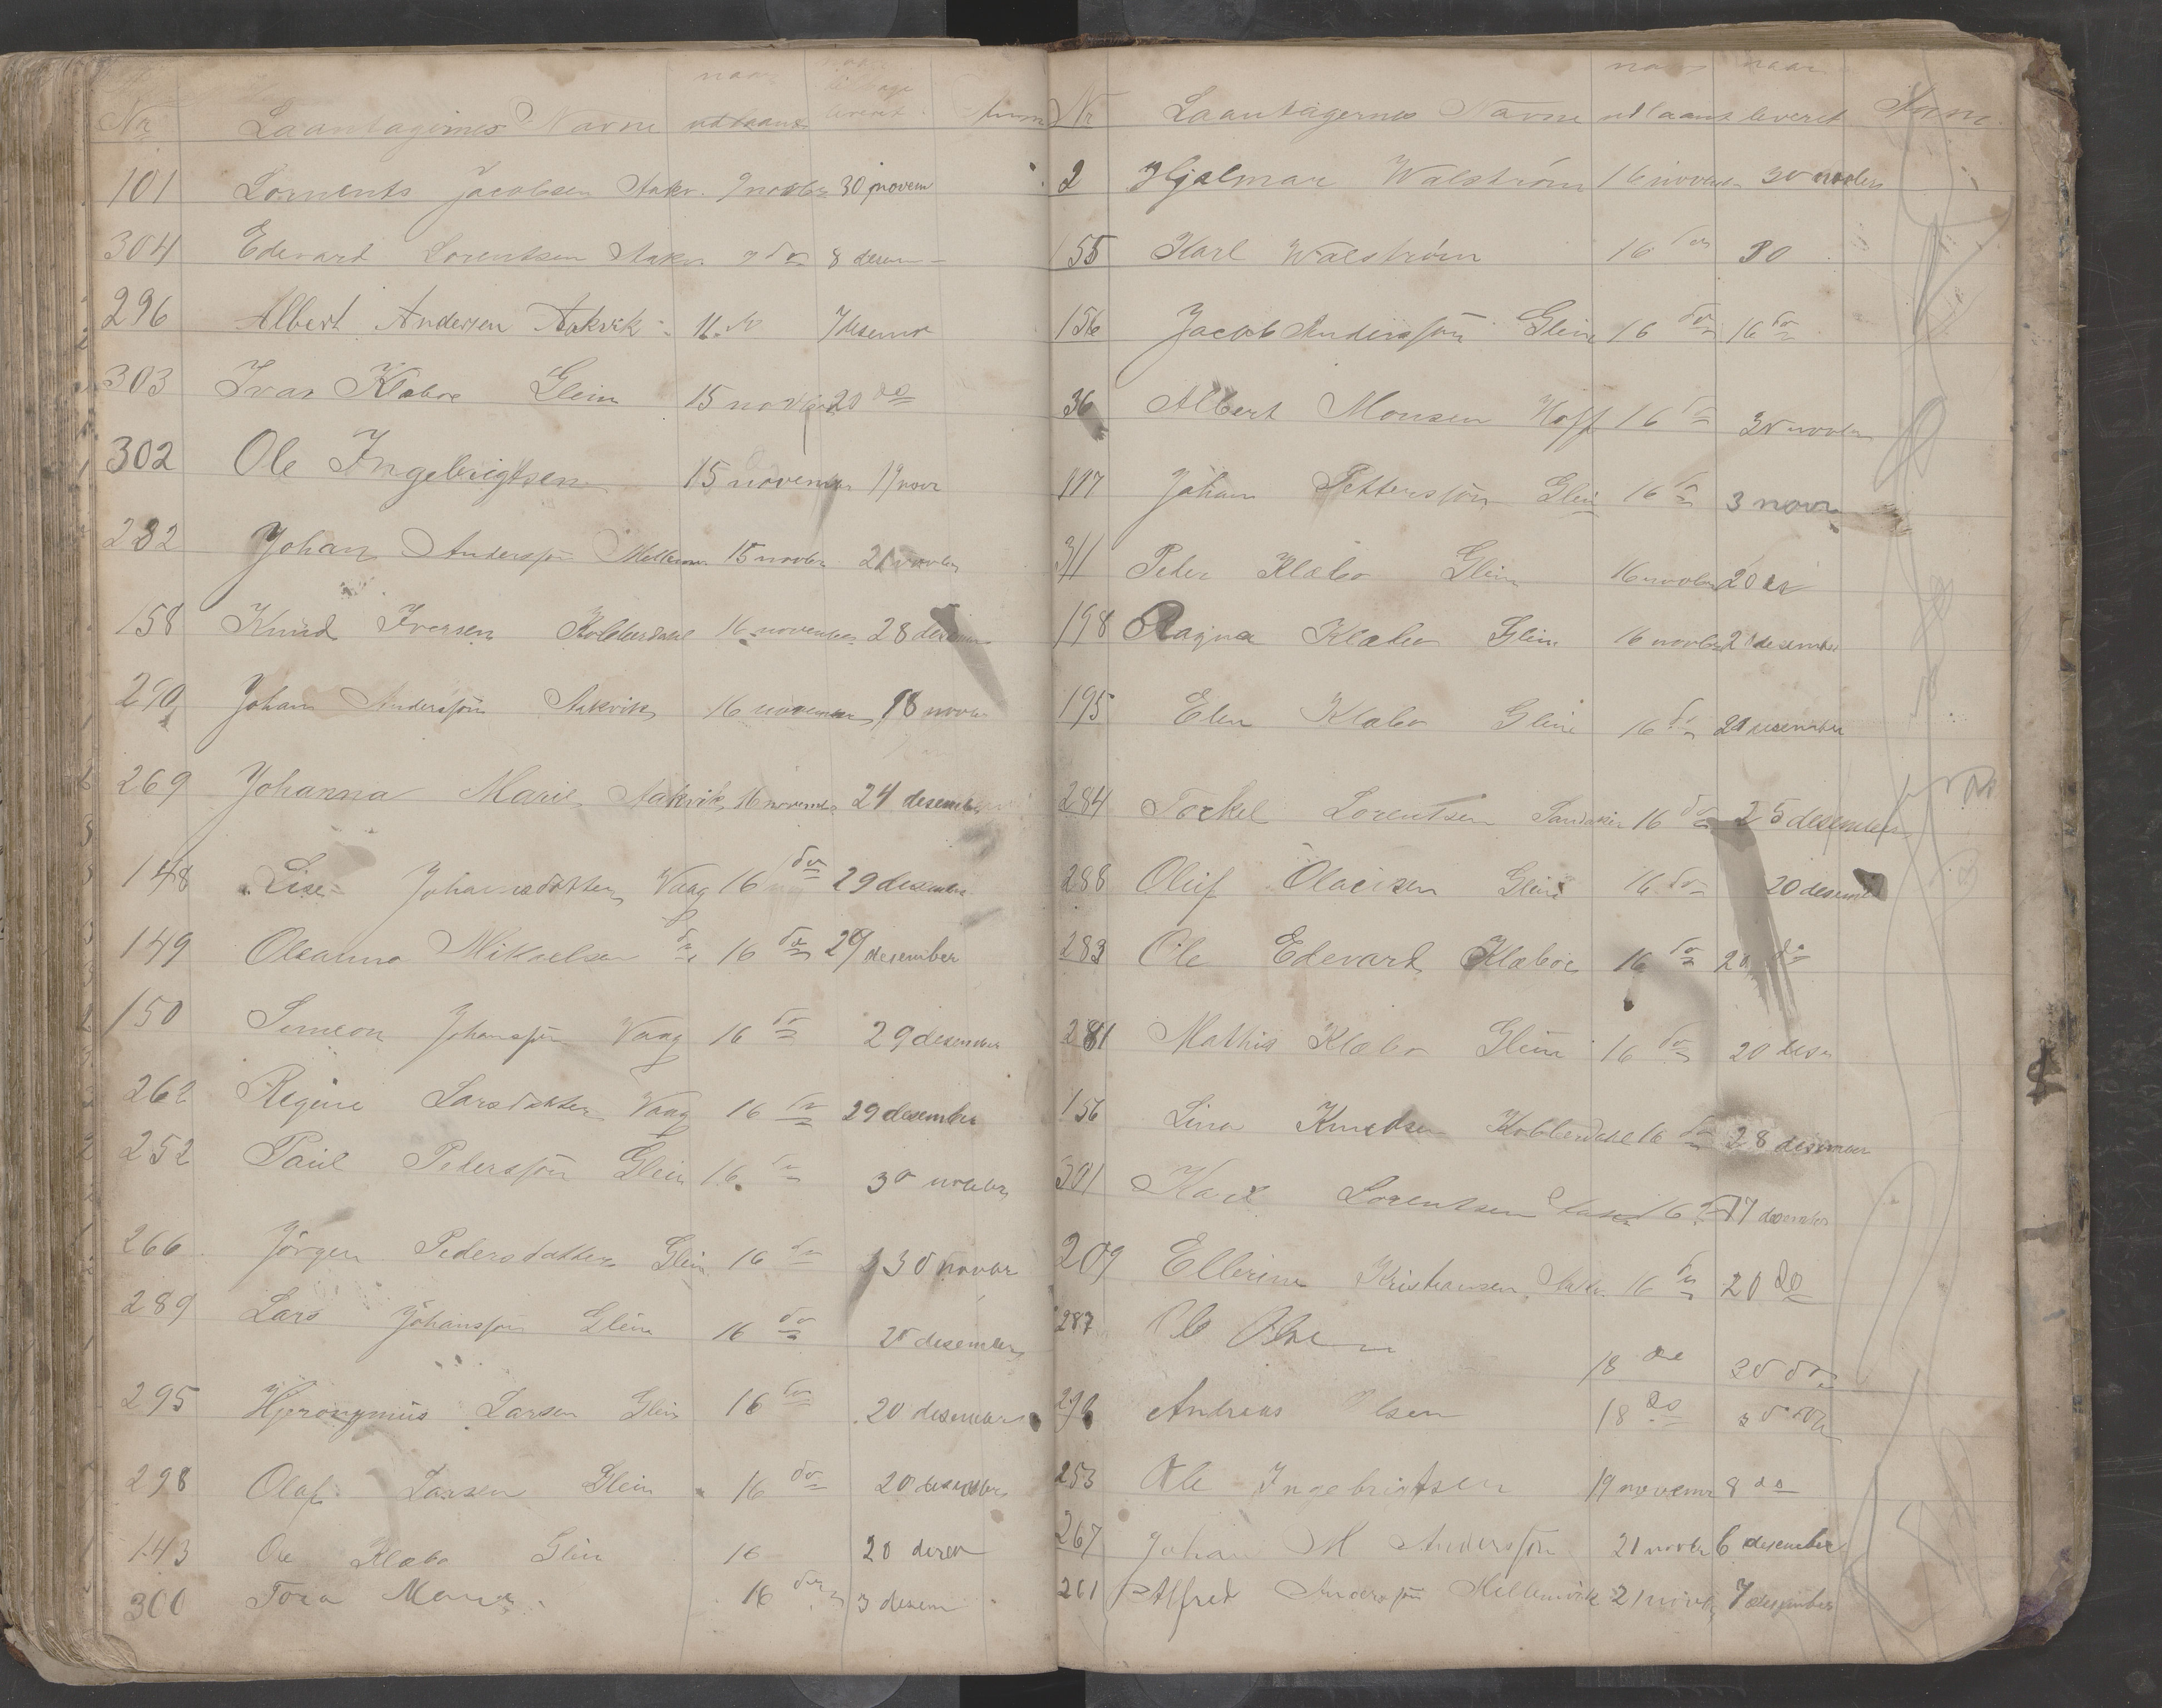 naar naar
tilbage
Nr Laantagernes Navne udlaant leveret Anm
101 Lorrents Jacobsen Aakv. 9 novbr 30 novem
304 Edevard Lorentsen Aakv 9 do 8 desem
296 Albert Andersen Aakvik 11. do 7 desemr
303 Ivar Klæboe Glein 15 novbr 20 do
302 Ole Ingebrigtsen 15 novemr 19 novr
232 Johan Anderssøn Mellem 15 novbr 21 novbr
158 Knud Iversen Kobberdahl 16 november 28 desem
290 Johan Anderssøn Aakvik 16 november 18 novbr
269 Johanna Marie Aakvik 16 november 24 desember
148 Lise Johannsdatter Vaag 16 do 29 desember
149 Oleanna Mikaelsen do 16 do 29 desember
150 Simeon Johanssøn Vaag 16 do 29 desember
262 Regine Larsdatter Vaag 16 do 29 desember
252 Paul Peterssøn Glein 16 do 30 novbr
266 Jörgen Pedersdatter Glein 16 do 30 novbr
289 Lars Johanssøn Glein 16 do 20 desember
295 Hjeronymus Larsen Glein 16 do 20 desember
298 Olaf Larsen Glein 16 do 20 desember
143 Ole Klæbo Glein 16 20 desem
300 Tora 16 do 3 desem
naar naar
Nr Laantagernes Navne udlaant leveret Anm.
2 Hjalmar Walström 16 novem 30 novbr
155 Karl Walström 16 do 30
156 Jacob Anderssøn Glein 16 do 16 do
36 Albert Monsen Hoff 16 do 30 novbr
117 Johan Petterssøn Glein 16 do 3 novr
311 Peder Klæbo Glein 16 novbr 20 do
198 Ragna Klæbo Glein 16 novbr 20 desember
195 Elen Klæbo Glein 16 do 20 desember
284 Torkel Lorentsen Sandaker 16 do 25 desember
288 Oluf Olaisen Glein 16 do 20 desember
283 Ole Edevard Klæboe 16 do 20 do
281 Mathis Klæbo Glein 16 do 20 desr
156 Lina Knudsen Kobberdahl 16 do 28 desember
301 Karl Lorentsen 16 do 17 desember
209 Ellerine Kristiansen Aakv. 16 do 20 do
287 Ole Olsen 18 do 30 do
Andreas Olsen 18 do 30 do
253 Ole Ingebrigtsen 19 novemr 8 do
267 Johan M Anderssøn 21 novbr 6 desember
261 Alfred Anderssøn Mellemvik 21 novbr 7 desember